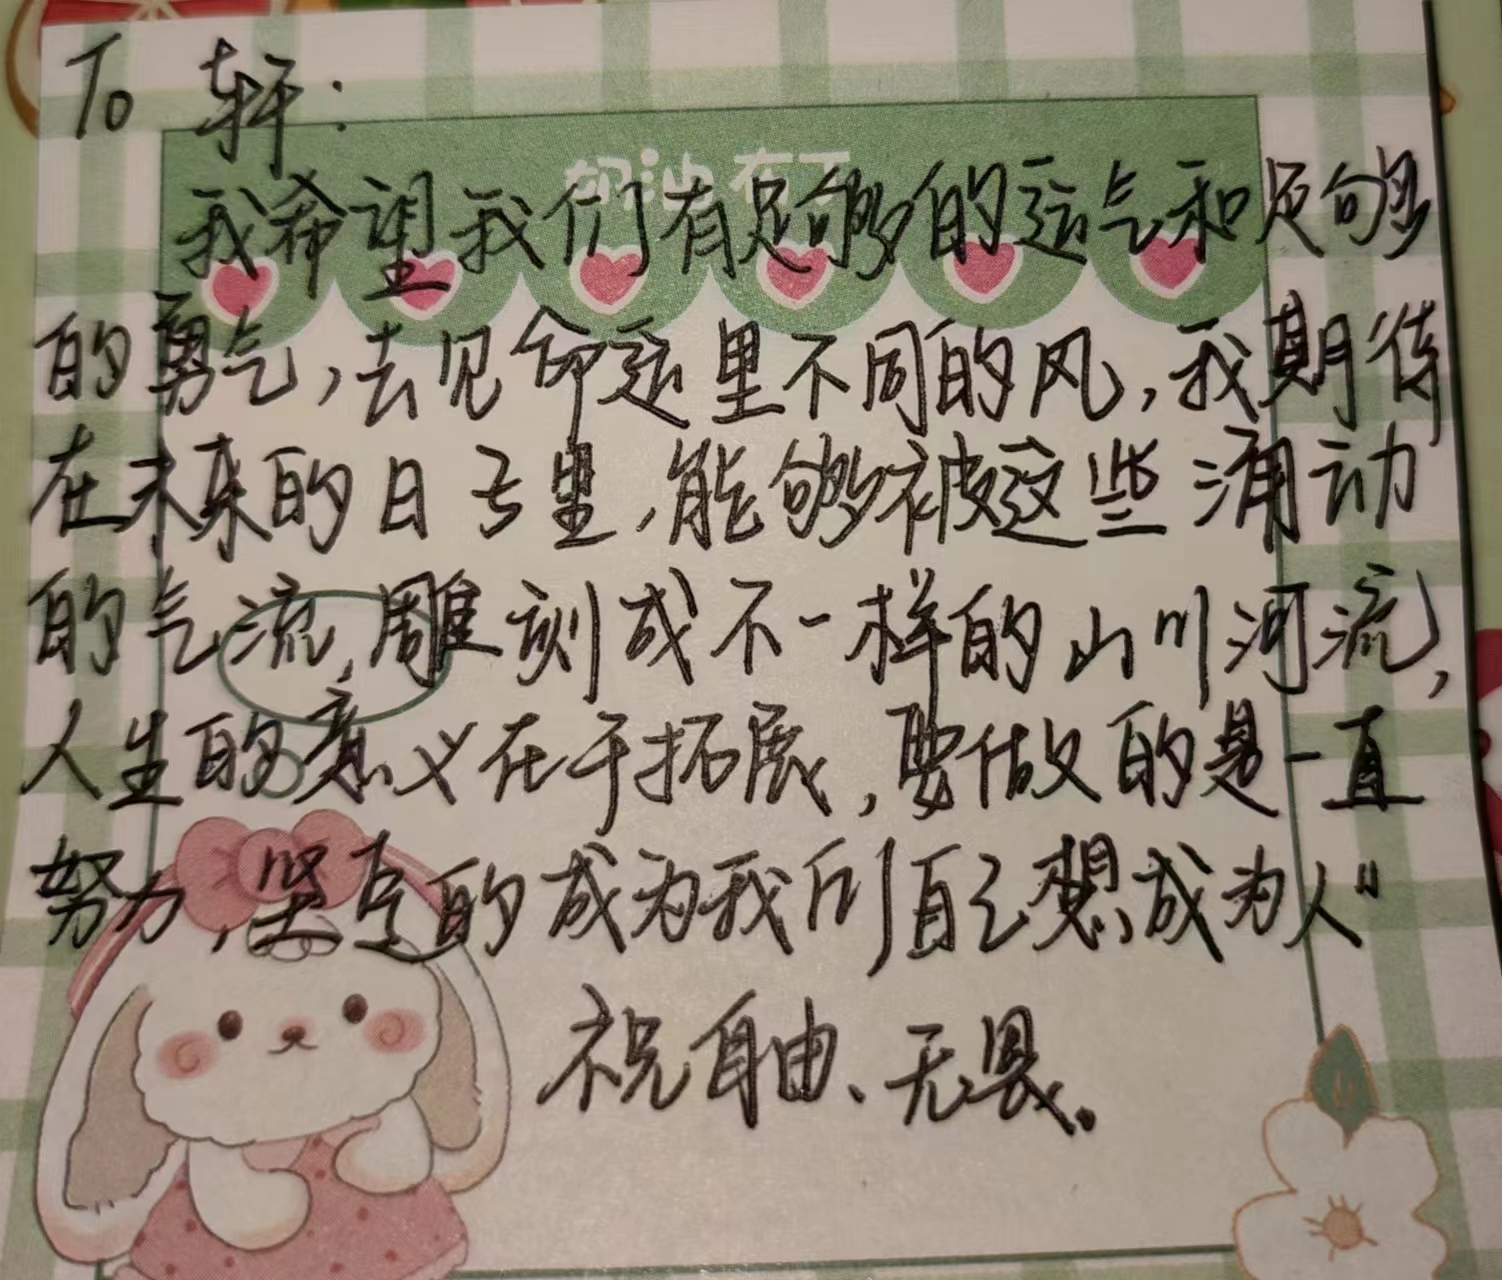 To 轩:
奶油布丁
我希望我们有足够的运气和足够
的勇气,去见命运里不同的风,我期待
在未来的日子里,能够被这些涌动
的气流,雕刻成不一样的山川河流,
人生的意义在于拓展,要做的是一直
努力,坚定的成为我们自己想成为人"
祝自由、无畏。